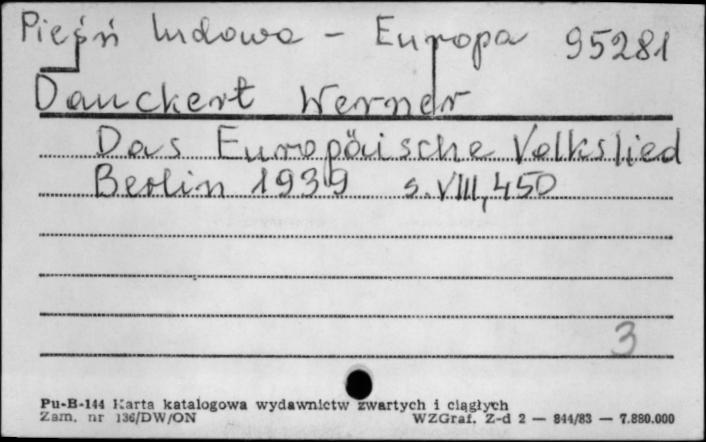 Pieśń ludowa - Europa 95281
Danckert Werner
Das Europäische Volkslied
Berlin 1939 s. VIII, 450
3
Pu-B-144 Karta katalogowa wydawnictw zwartych i ciągłych
Zam. nr 136/DW/ON WZGraf. Z-d 2 — 844/83 — 7.880.000